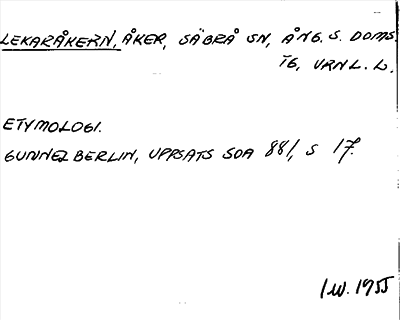 LEKARÅKERN, ÅKER, SÄBRÅ SN, ÅNG. S. DOMS.
TG, VRNL. L.
ETYMOLOGI.
GUNNEL BERLIN, UPPSATS SOA 881, S 17.
I.W. 1955